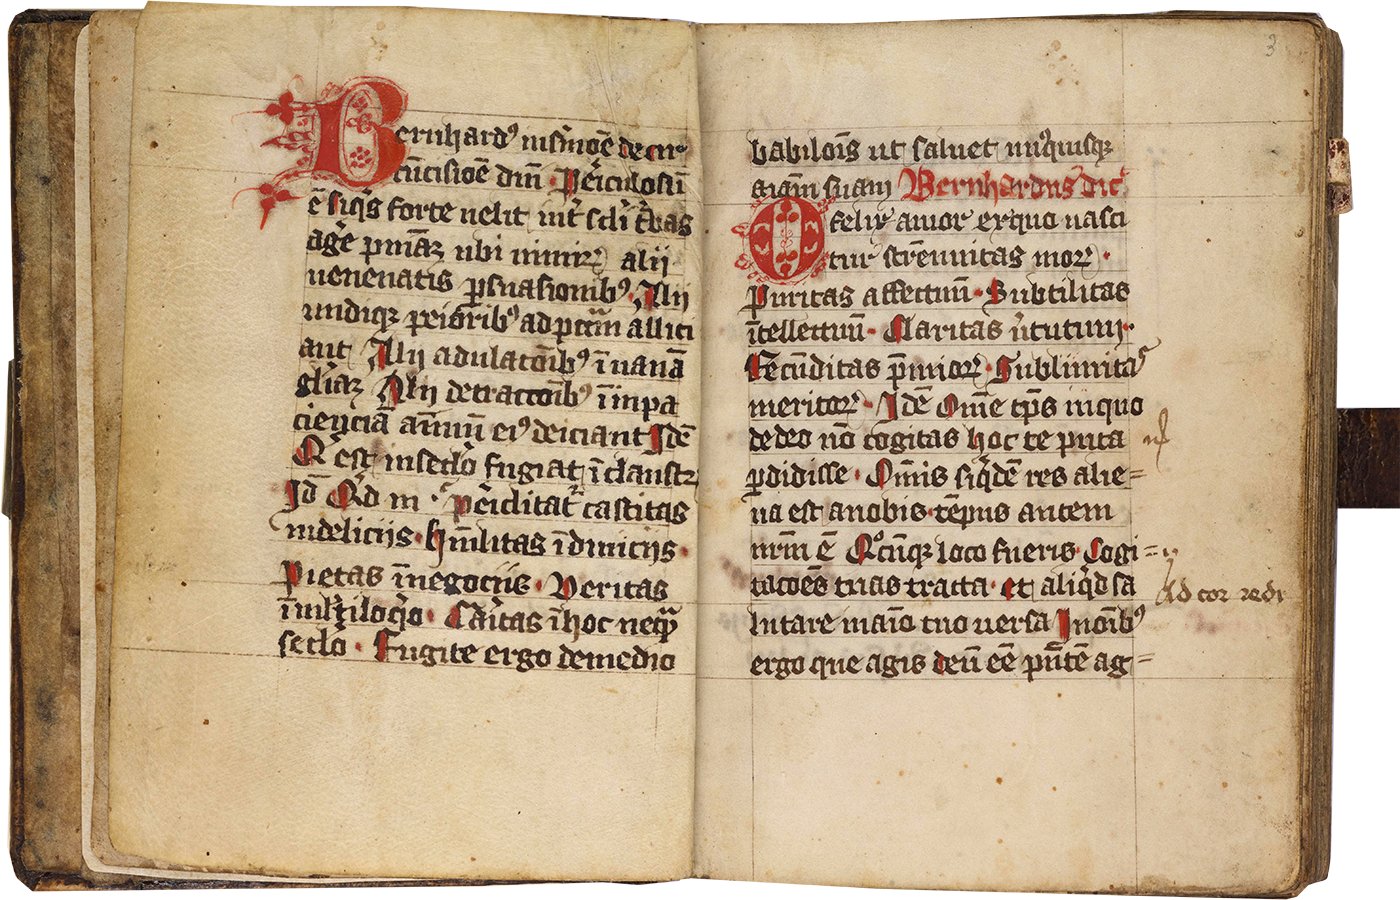 Bernhardꝰ in s̄mōe de cır
cūcisiōe dn̄i · Periculosū
ē siqͥs forte uelit int̄ scl̄i t̄bas
agē pn̄iaꝫ ubi nimiꝝ alij
uenenatis ꝑsuasionibꝰ · Alij
undiqꝫ peioribꝰ ad pctm̄ allici
ant Alij adulatōibꝰ ī uanā
gl̄iaꝫ Alij detractōibꝰ ī inpa
cienciā an̄imū eiꝰ deiciant Idē
Qͥ est in sclo fugiat ī claustꝝ
Id Qd in · ꝑiclitatᷣ castitas
in delicijs · humilitas ī diuicijs ·
Pietas ī negocijs · Veritas
ī mltiloqͦo · Caͥtas ī hoc neqͣ
seclo · Fugite ergo de medio
3
babilōis ut saluet unꝰquisqꝫ
aīam suam Bernhardus dic̄
O felix amor ex quo nasci
tur strēnuitas moꝝ ·
Puritas affectuū · Subtilitas
ītellectuū · Claritas uͥtutum ·
Fecūditas p̄mioꝝ · Sublimitas
meritoꝝ · Idē Om̄e tp̄s in quo
de deo nō cogitas hoc te puta
ꝑdidisse · Om̄is siqͥdē res alie=
na est a nobis · tēpus autem
nr̄m ē Qͦcūqꝫ loco fueris Cogi=
tacōēs tuas tracta · et aliqͥd sa
Ad cor redi
lutare in aīo tuo uersa In oībꝰ
ergo que agis deū eē pn̄tē ag=